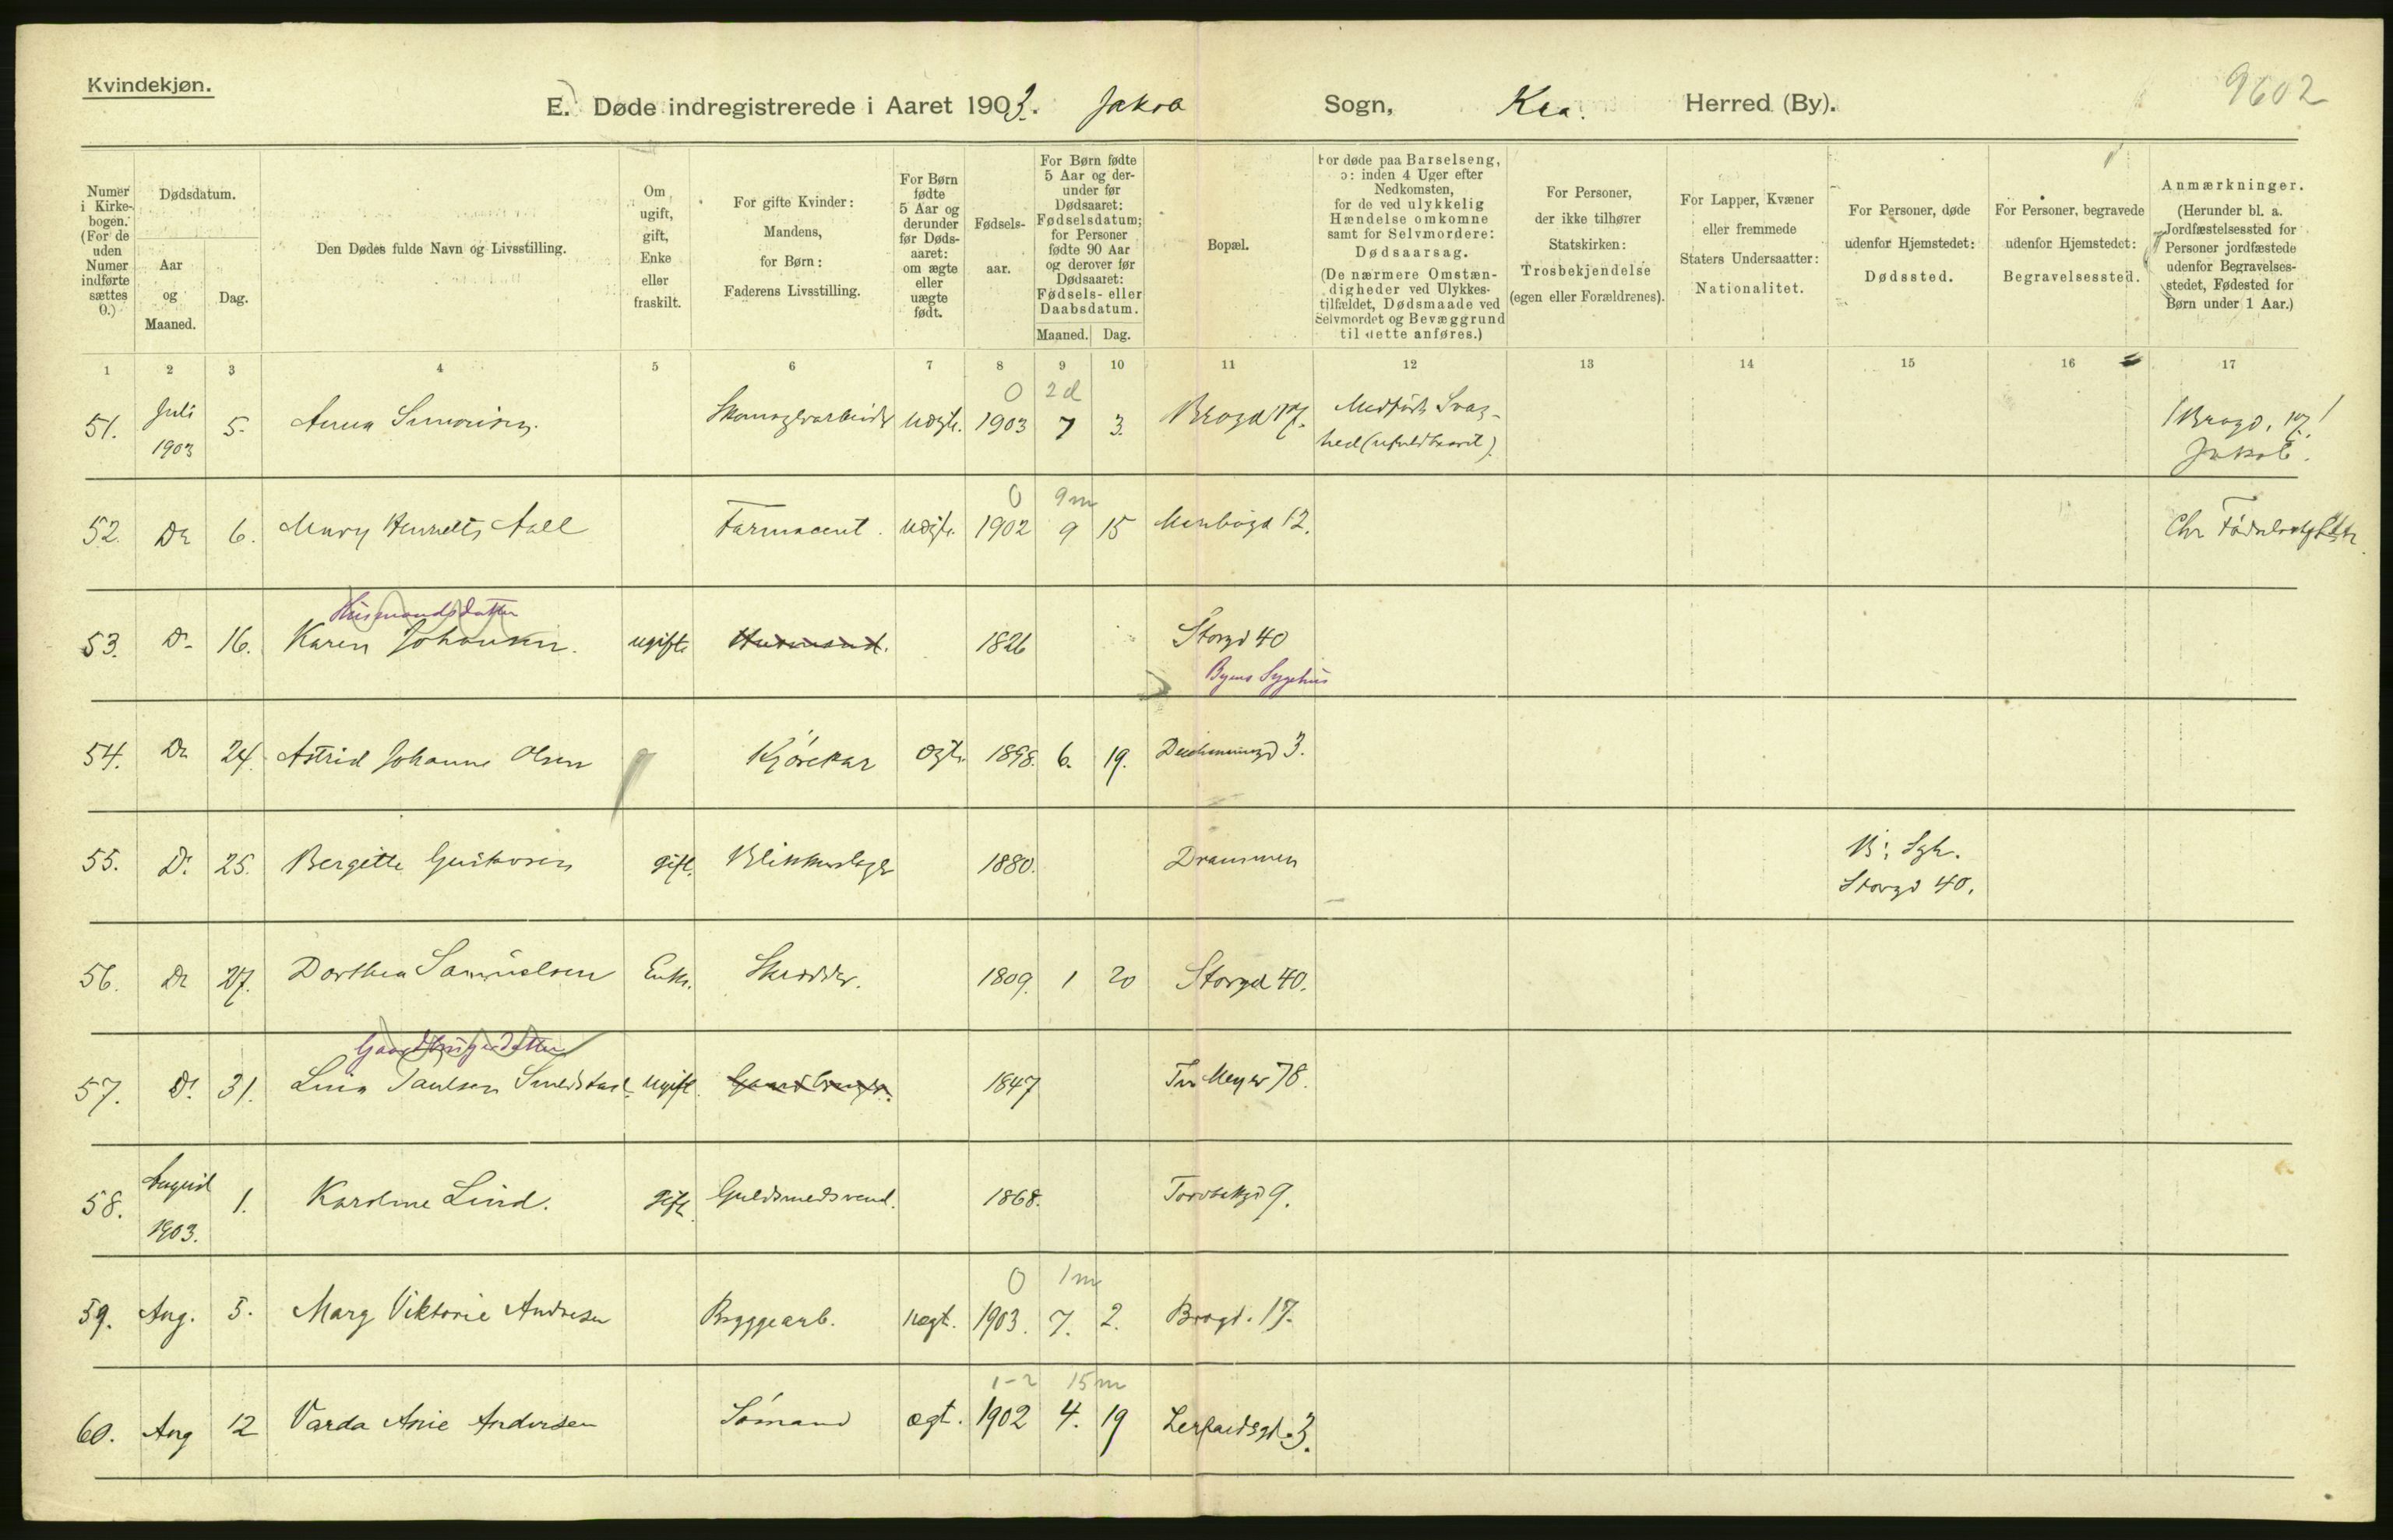 Kvindekjøn.
E. Døde indregistrerede i Aaret 1903. Jakob Sogn, Kra. Herred (By).
9602
Numer i Kirkebogen. (For de uden Numer indførte sættes 0.)
Dødsdatum.
Aar og Maaned.
Dag.
Den Dødes fulde Navn og Livsstilling.
Om ugift, gift, Enke eller fraskilt.
For gifte Kvinder: Mandens, for Børn: Faderens Livsstilling.
For Børn fødte 5 Aar og derunder før Dødsaaret: om ægte eller uægte født.
Fødselsaar.
For Børn fødte 5 Aar og derunder før Dødsaaret: Fødselsdatum; for Personer fødte 90 Aar og derover før Dødsaaret: Fødsels- eller Daabsdatum.
Maaned. Dag.
Bopæl.
For døde paa Barselseng, ɔ: inden 4 Uger efter Nedkomsten, for de ved ulykkelig Hændelse omkomne samt for Selvmordere: Dødsaarsag. (De nærmere Omstændigheder ved Ulykkestilfældet, Dødsmaade ved Selvmordet og Bevæggrund til dette anføres.)
For Personer, der ikke tilhører Statskirken: Trosbekjendelse (egen eller Forældrenes).
For Lapper, Kvæner eller fremmede Staters Undersaatter: Nationalitet.
For Personer, døde udenfor Hjemstedet: Dødssted.
For Personer, begravede udenfor Hjemstedet: Begravelsessted.
Anmærkninger. (Herunder bl. a. Jordfæstelsessted for Personer jordfæstede udenfor Begravelsesstedet, Fødested for Børn under 1 Aar.)
1 2 3 4 5 6 7 8 9 10 11 12 13 14 15 16 17
0 2d
51. Juli 1903 5. Anna Simonsen. uægte. 1903 7 3. Brogd 17. Medfødt Svaghed (ufuldbaaret). (Brogd. 17.) Jakob.
0 9m
52. Do 6. Mary Aall Farmaceut. uægte. 1902 9 15 12. Chr
Husmandsdatter
53. Do 16. Karen Johansen. ugift Husmand. 1826 Storgd 40
Byens Sygehus
54. Do 24. Astrid Johanne Olsen Kjørekar ægte 1898. 6. 19. Deichmansgd 3.
55. Do 25. Bergitte Gustavsen gift. Blikkenslager 1880. Drammen B. Sgh. Storgd 40.
56. Do 27. Dorthea Samuelsen Enke. Skrædder. 1809. 1 20 Storgd 40.
Gaardbrugerdatter
57. Do 31. Lina Paulsen Smedstad ugift. Gaardbruger. 1847 Meyer 78.
58. August 1903. 1. Karoline Lind. gift. Guldsmedsvend. 1868. 9.
0 1m
59. Aug. 5. Marg Viktorie Andresen Byggearb. uægt. 1903. 7. 2. Brogt. 17.
1-2 15m
60. Aug 12 Varda Anie Andersen Sømand ægt. 1902 4. 19 Lerfaldsgt. 3.